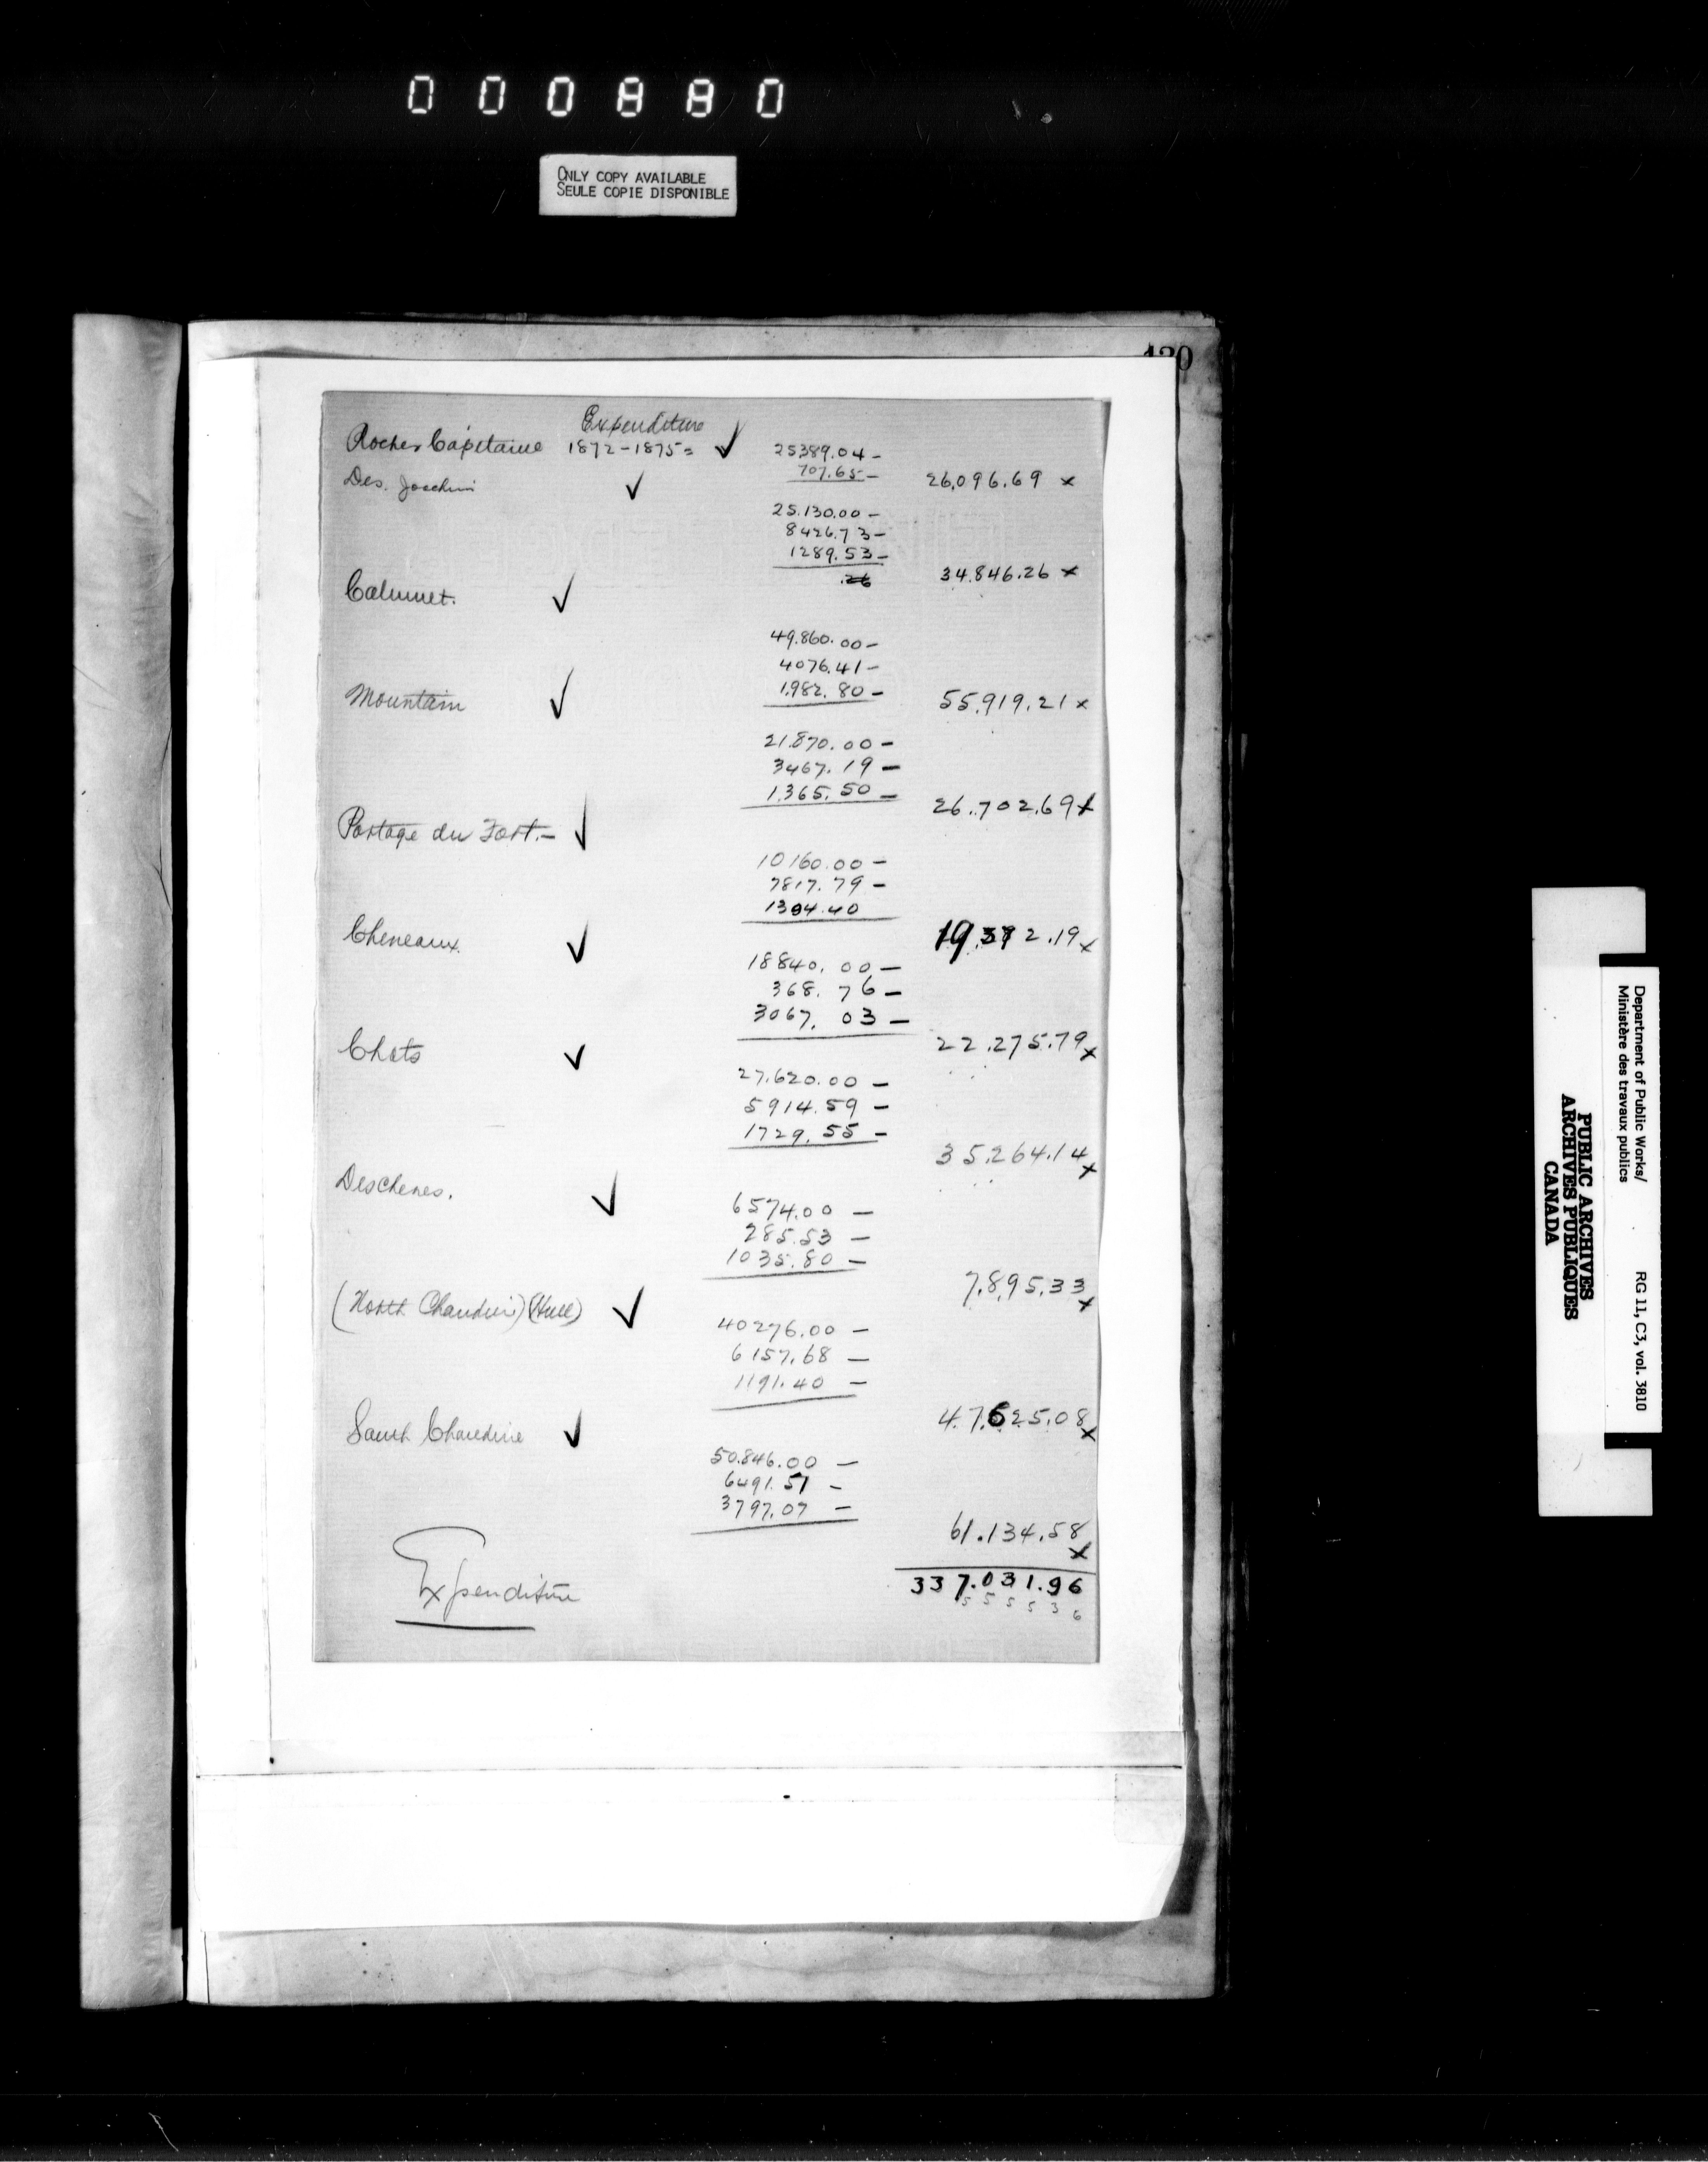 000880
ONLY COPY AVAILABLE
SEULE COPIE DISPONIBLE
130
Expenditure
Rocher Capitaine 1872-1875= ✓ 25389.04-
707.65- 26,096.69 x
Des. Joachim ✓
25.130.00-
8426.73-
1289.53-
.26 34.846.26 x
Calumet. ✓
49.860.00-
4076.41-
1.982.80- 55.919.21 x
Mountain ✓
21.870.00-
3467.19-
1.365.50- 26.702.69 x
Portage du Fort.- ✓
10160.00-
7817.79-
1394.40
19.372.19 x
Cheneaux. ✓
18840.00-
368.76-
3067.03-
22.275.79 x
Chats ✓
27.620.00-
5914.59-
1729.55-
35.264.14 x
Deschenes. ✓
6574.00-
285.53-
1035.80-
7.895.33 x
(North Chaudiere) (Hull) ✓
40276.00-
6157.68-
1191.40-
47.625.08 x
South Chaudiere ✓
50.846.00-
6491.51-
3797.07-
61.134.58 x
337.031.96
5 5 5 5 3 6
Expenditure
Department of Public Works/
Ministère des travaux publics
RG 11, C3, vol. 3810
PUBLIC ARCHIVES
ARCHIVES PUBLIQUES
CANADA